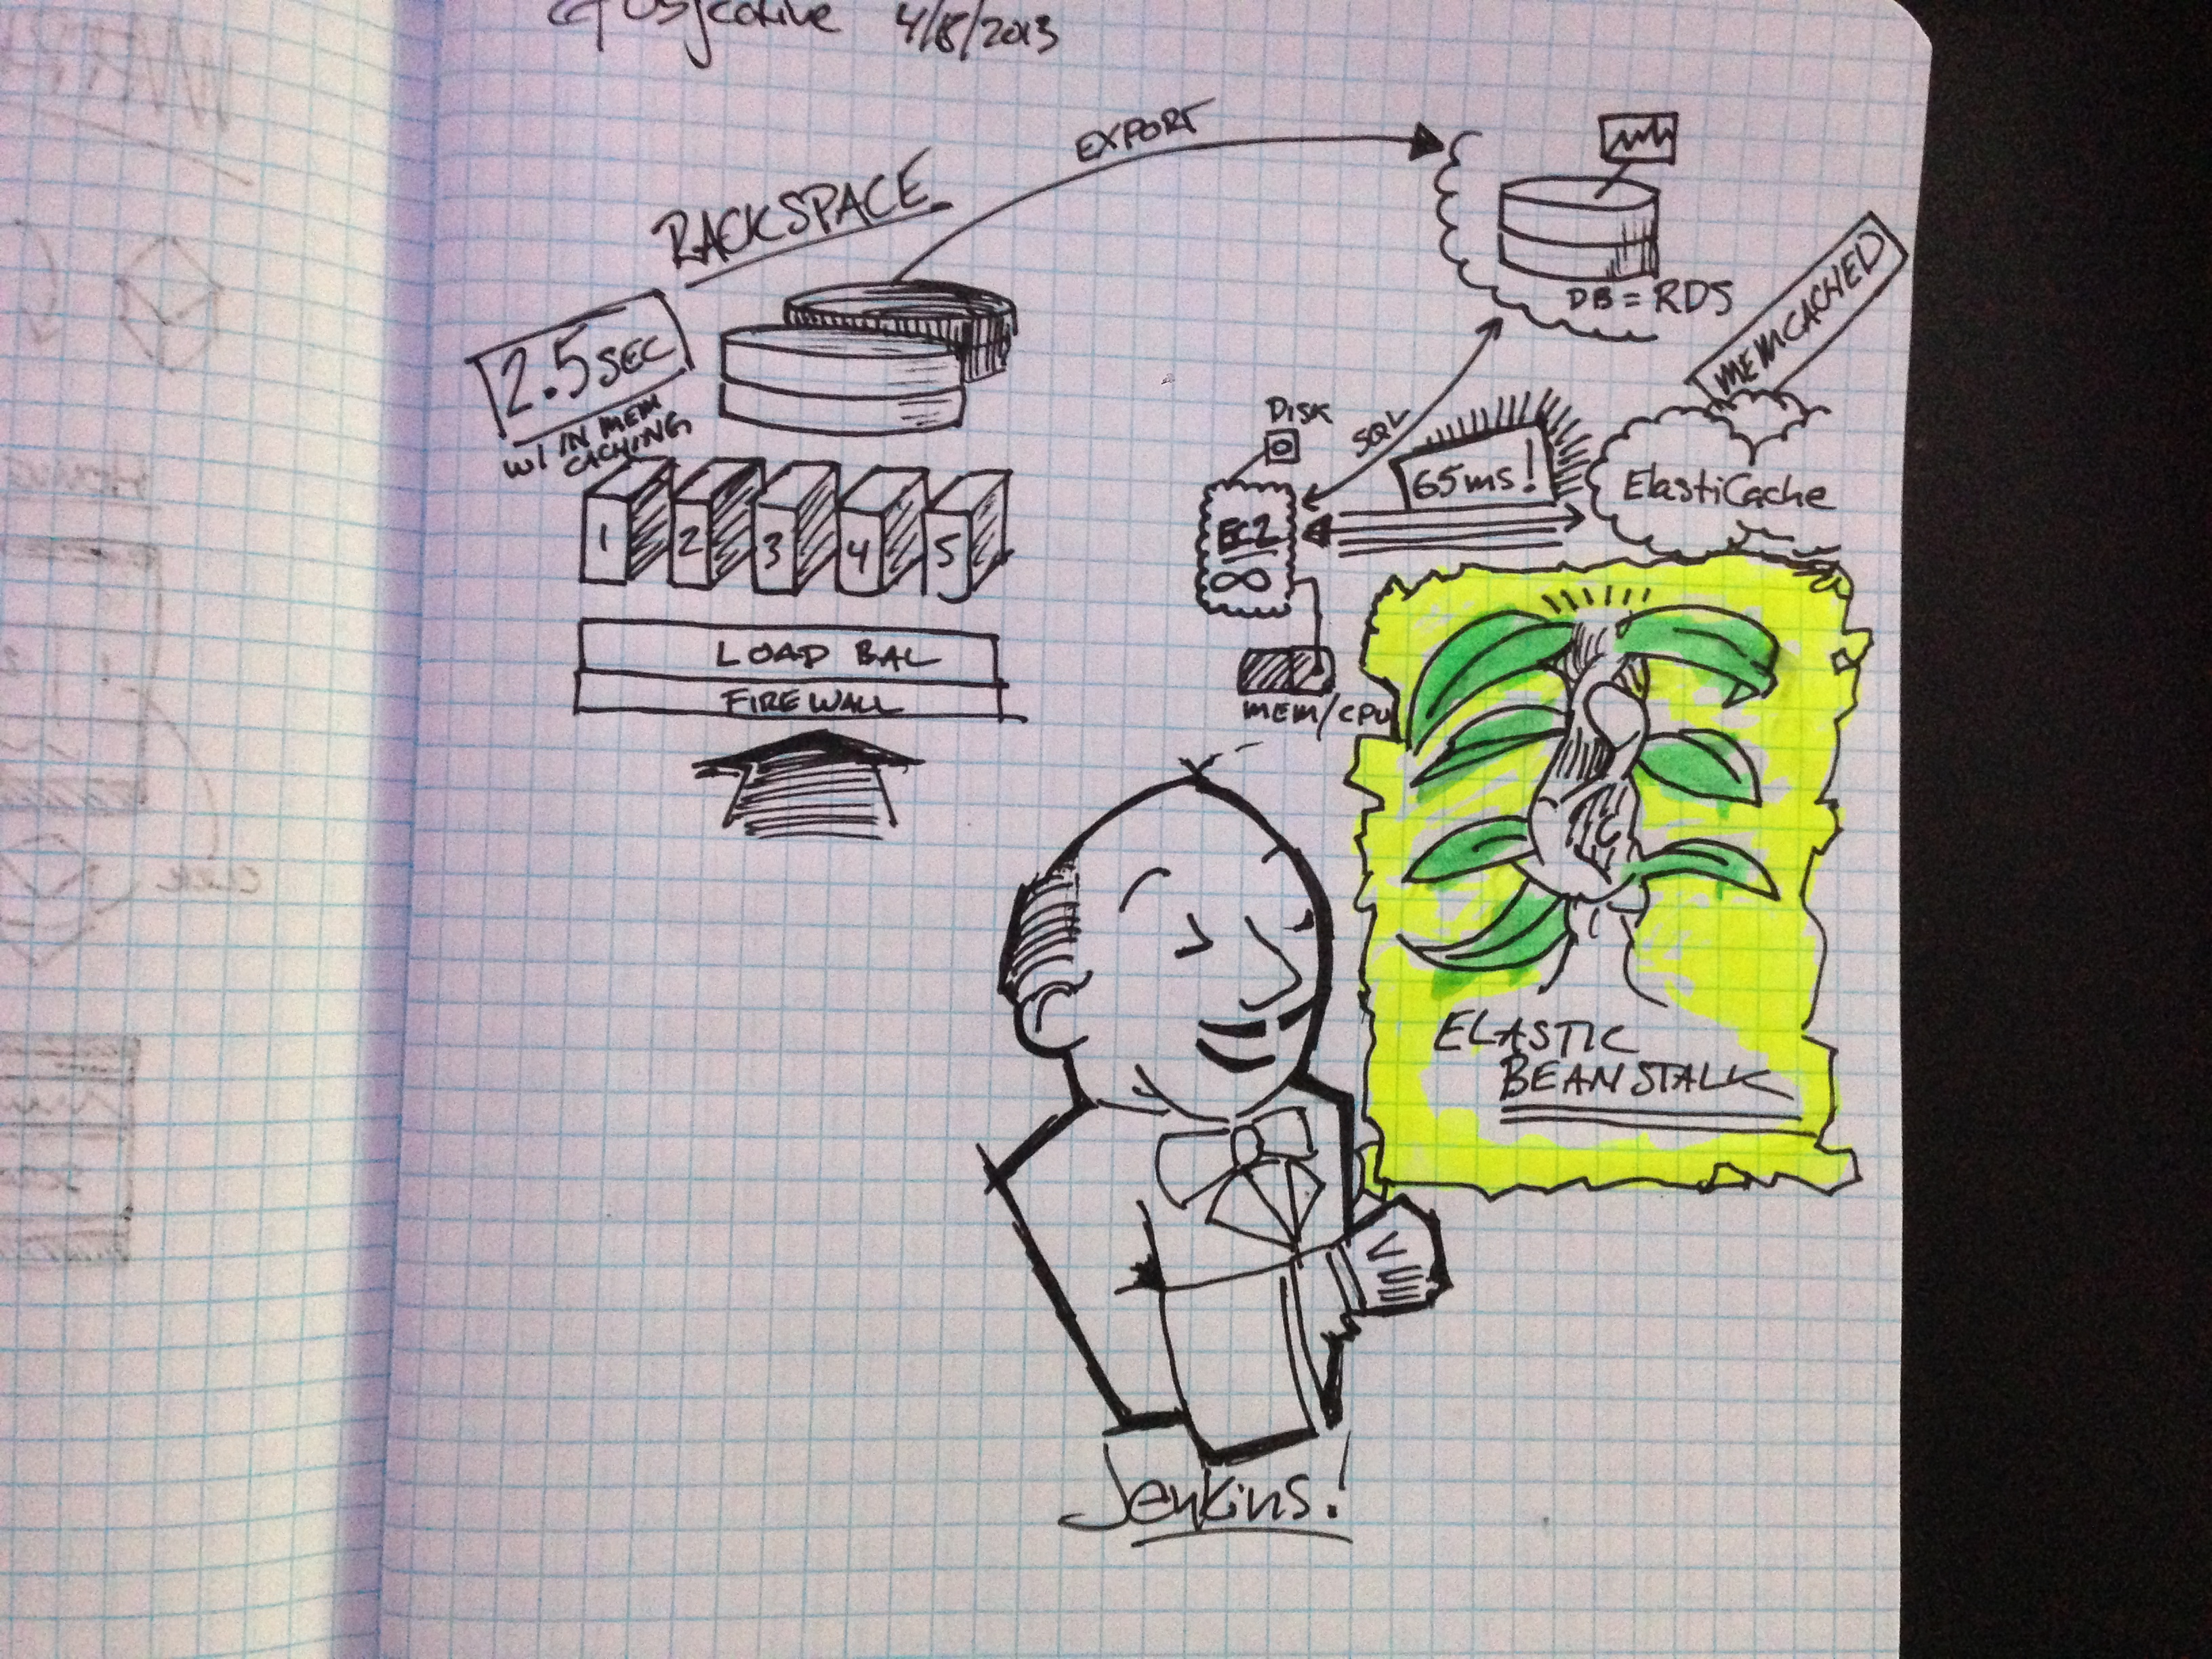 4/8/2013
RACKSPACE
EXPORT
2.5 SEC
w/ IN MEM
CACHING
1 2 3 4 5
LOAD BAL
FIREWALL
DB = RDS
SQL
DISK
EC2
∞
mem/cpu
65ms!
ElastiCache
MEMCACHED
ELASTIC
BEANSTALK
Jenkins!